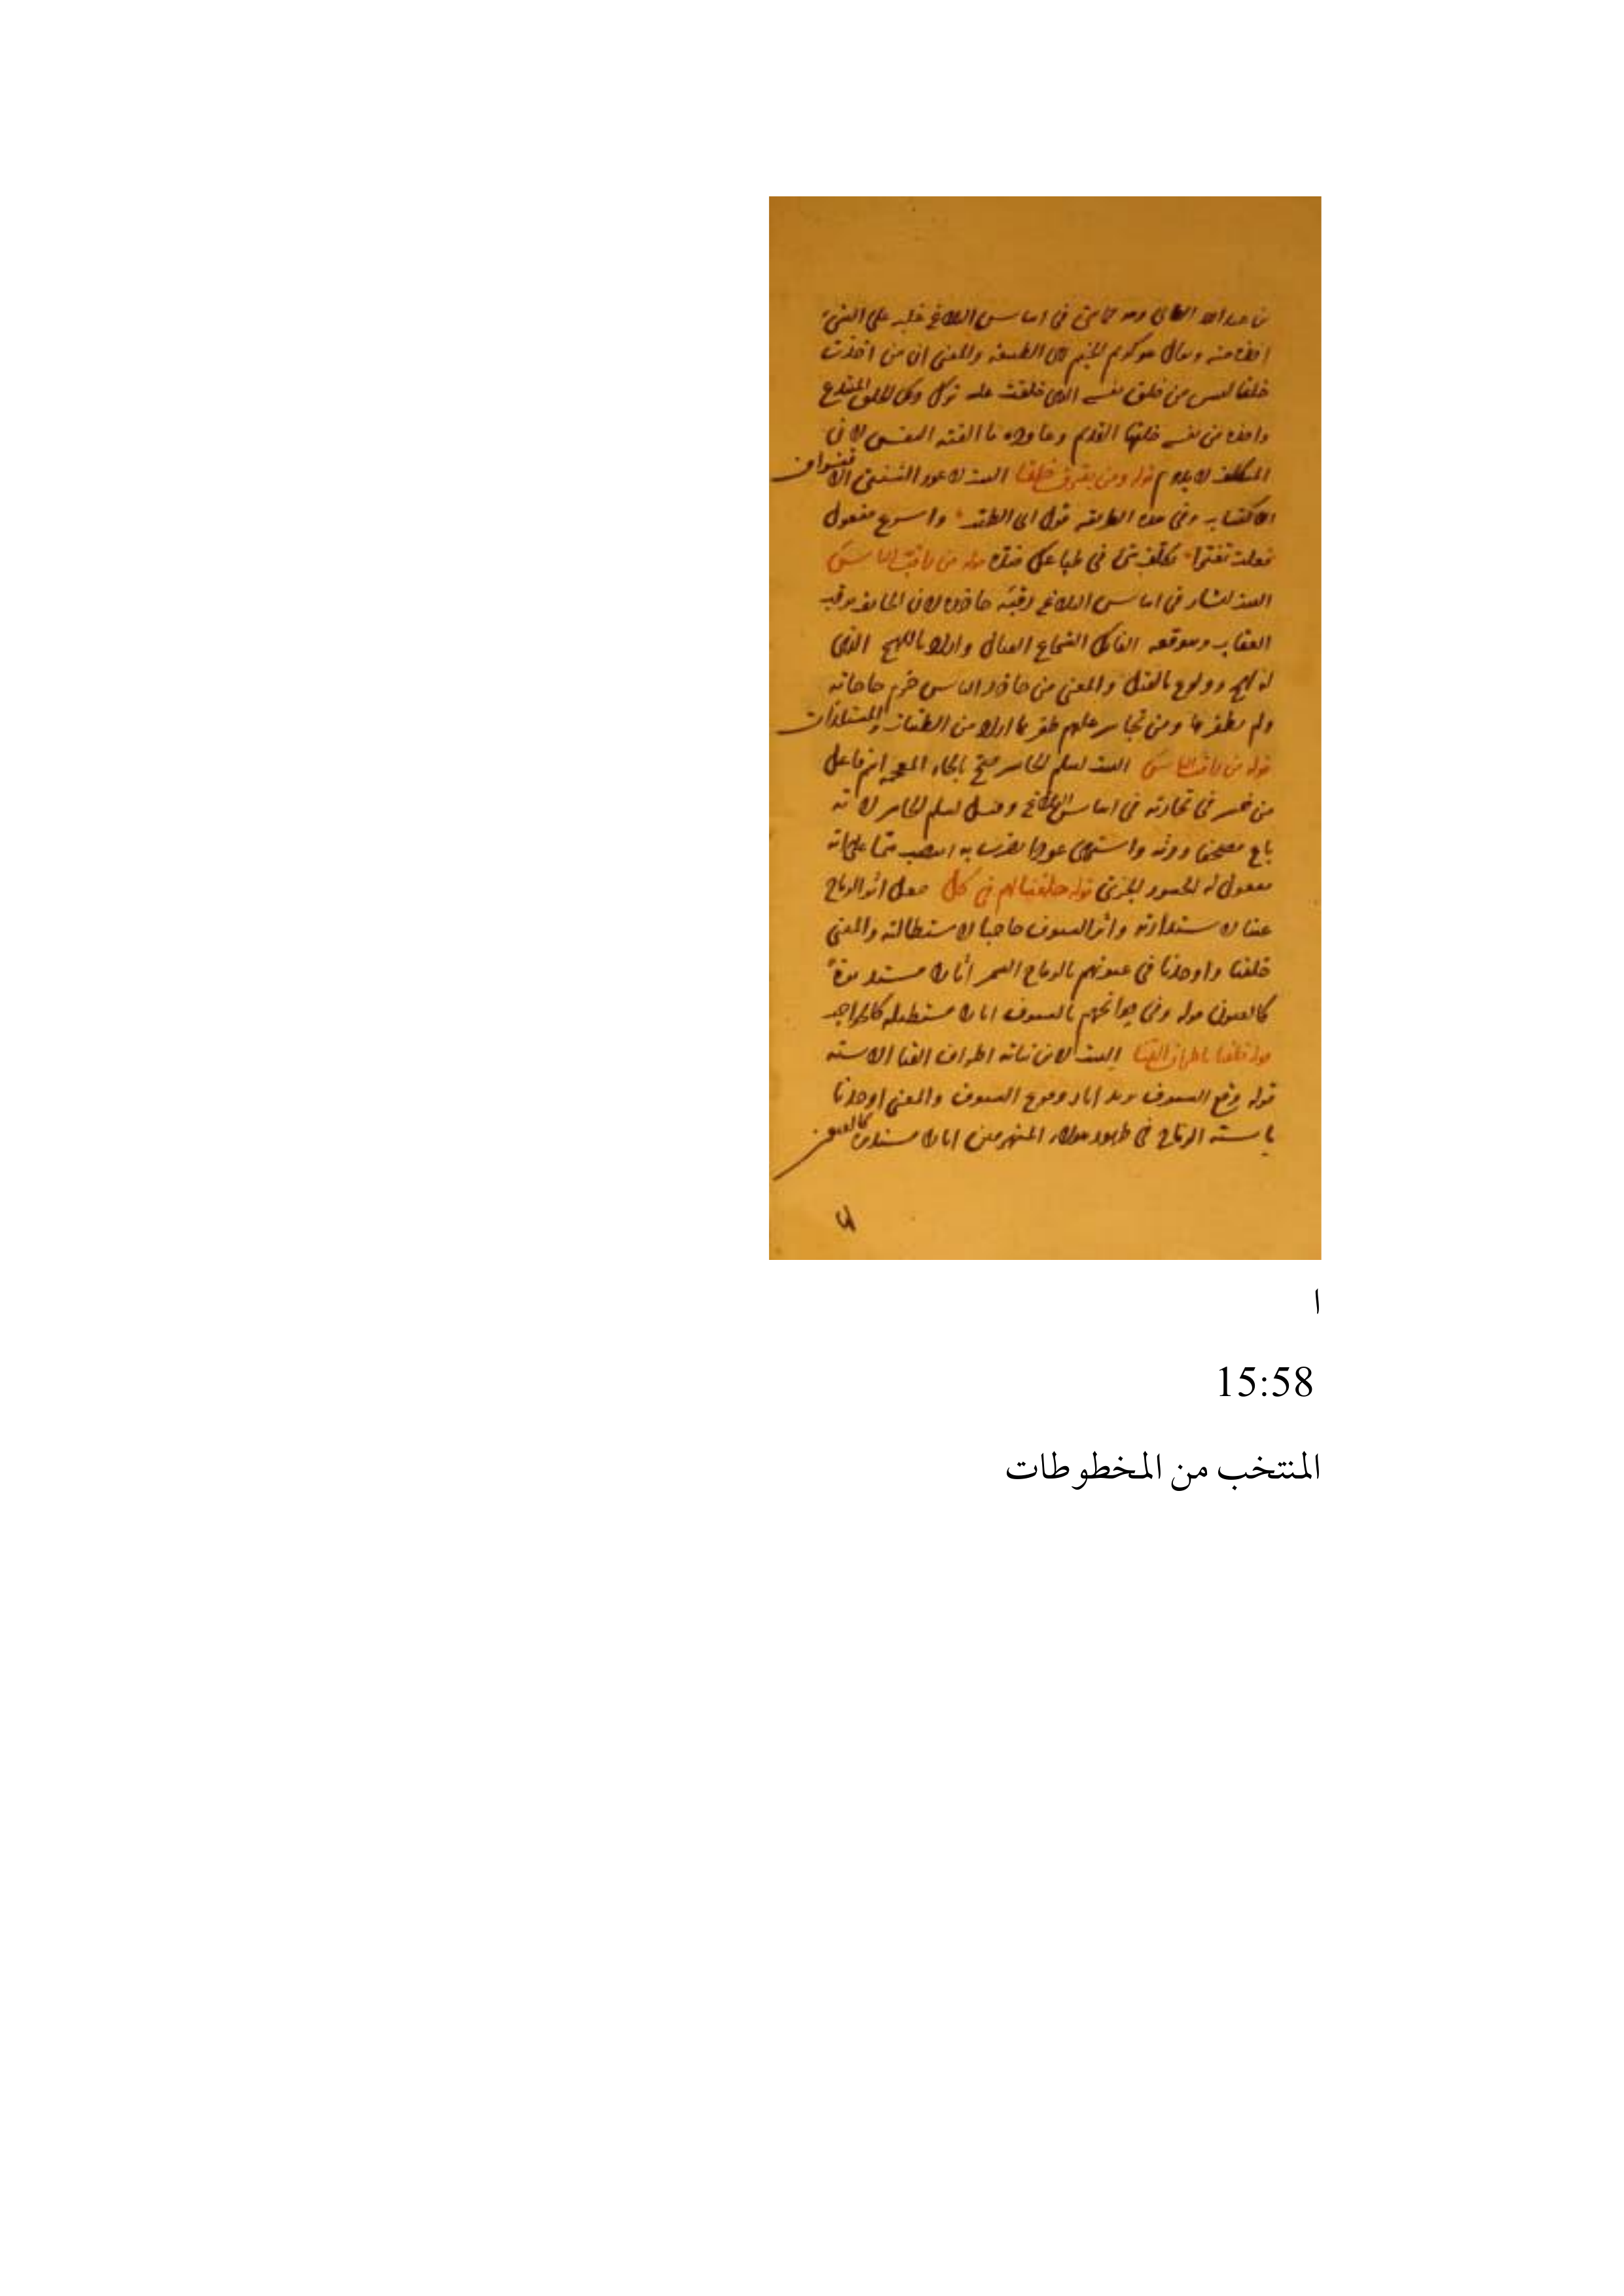 في اساس البلاغة غلبه على الشيء
اخذه منه ويقال هو كريم الخيم اي الطبيعة والمعنى ان من اخذت
خلقا ليس من خلق نفسه الذي خلقت عليه ترك
واخذه من نفسه خلقها القديم وعاوده ما الفته النفس لان
المتكلف لا يدوم قوله ومن يقترف خلقا البيت الاعور الشنّي الاقتراف
الاكتساب وفي هذه الطريقة قول ابي الطيب واسرع مفعول
فعلت تغيّرا تكلّف شيء في طباعك ضدّه قوله من راقب الناس
البيت لبشار في اساس البلاغة رقبه حاذره لان الخائف يرقب
العقاب ويتوقعه الفاتك الشجاع القتال واراد باللهج الذي
له لهج وولوع بالقتل والمعنى من حاذر الناس حرم حاجاته
ولم يظفر بها ومن تجاسر عليهم ظفر بما اراد من الطيبات والمستلذات
قوله من راقب الناس البيت لسلم الخاسر صحّ بالخاء المعجمة اسم فاعل
من خسر في تجارته في اساس البلاغة وقيل لسلم الخاسر لانه
باع مصحفا ورثه واشترى عودا يضرب به انتصب غمّا على انه
مفعول له الجسور الجري قوله خلقنا لهم في كل جعل اثر الرماح
عينا لاستدارته واثر السيوف حاجبا لاستطالته والمعنى
خلقنا واوجدنا في عيونهم بالرماح السمر آثارا مستديرة
كالعيون قوله وفي جوانحهم بالسيوف آثارا مستطيلة كالحواجب
قوله خلقنا باطراف القنا البيت لابن نباته اطراف القنا الاسنة
قوله وقع السيوف يريد آثار وقوع السيوف والمعنى اوجدنا
باسنة الرماح في ظهور هؤلاء المنهزمين آثارا مستديرة كالعيون
ا
15:58
المنتخب من المخطوطات